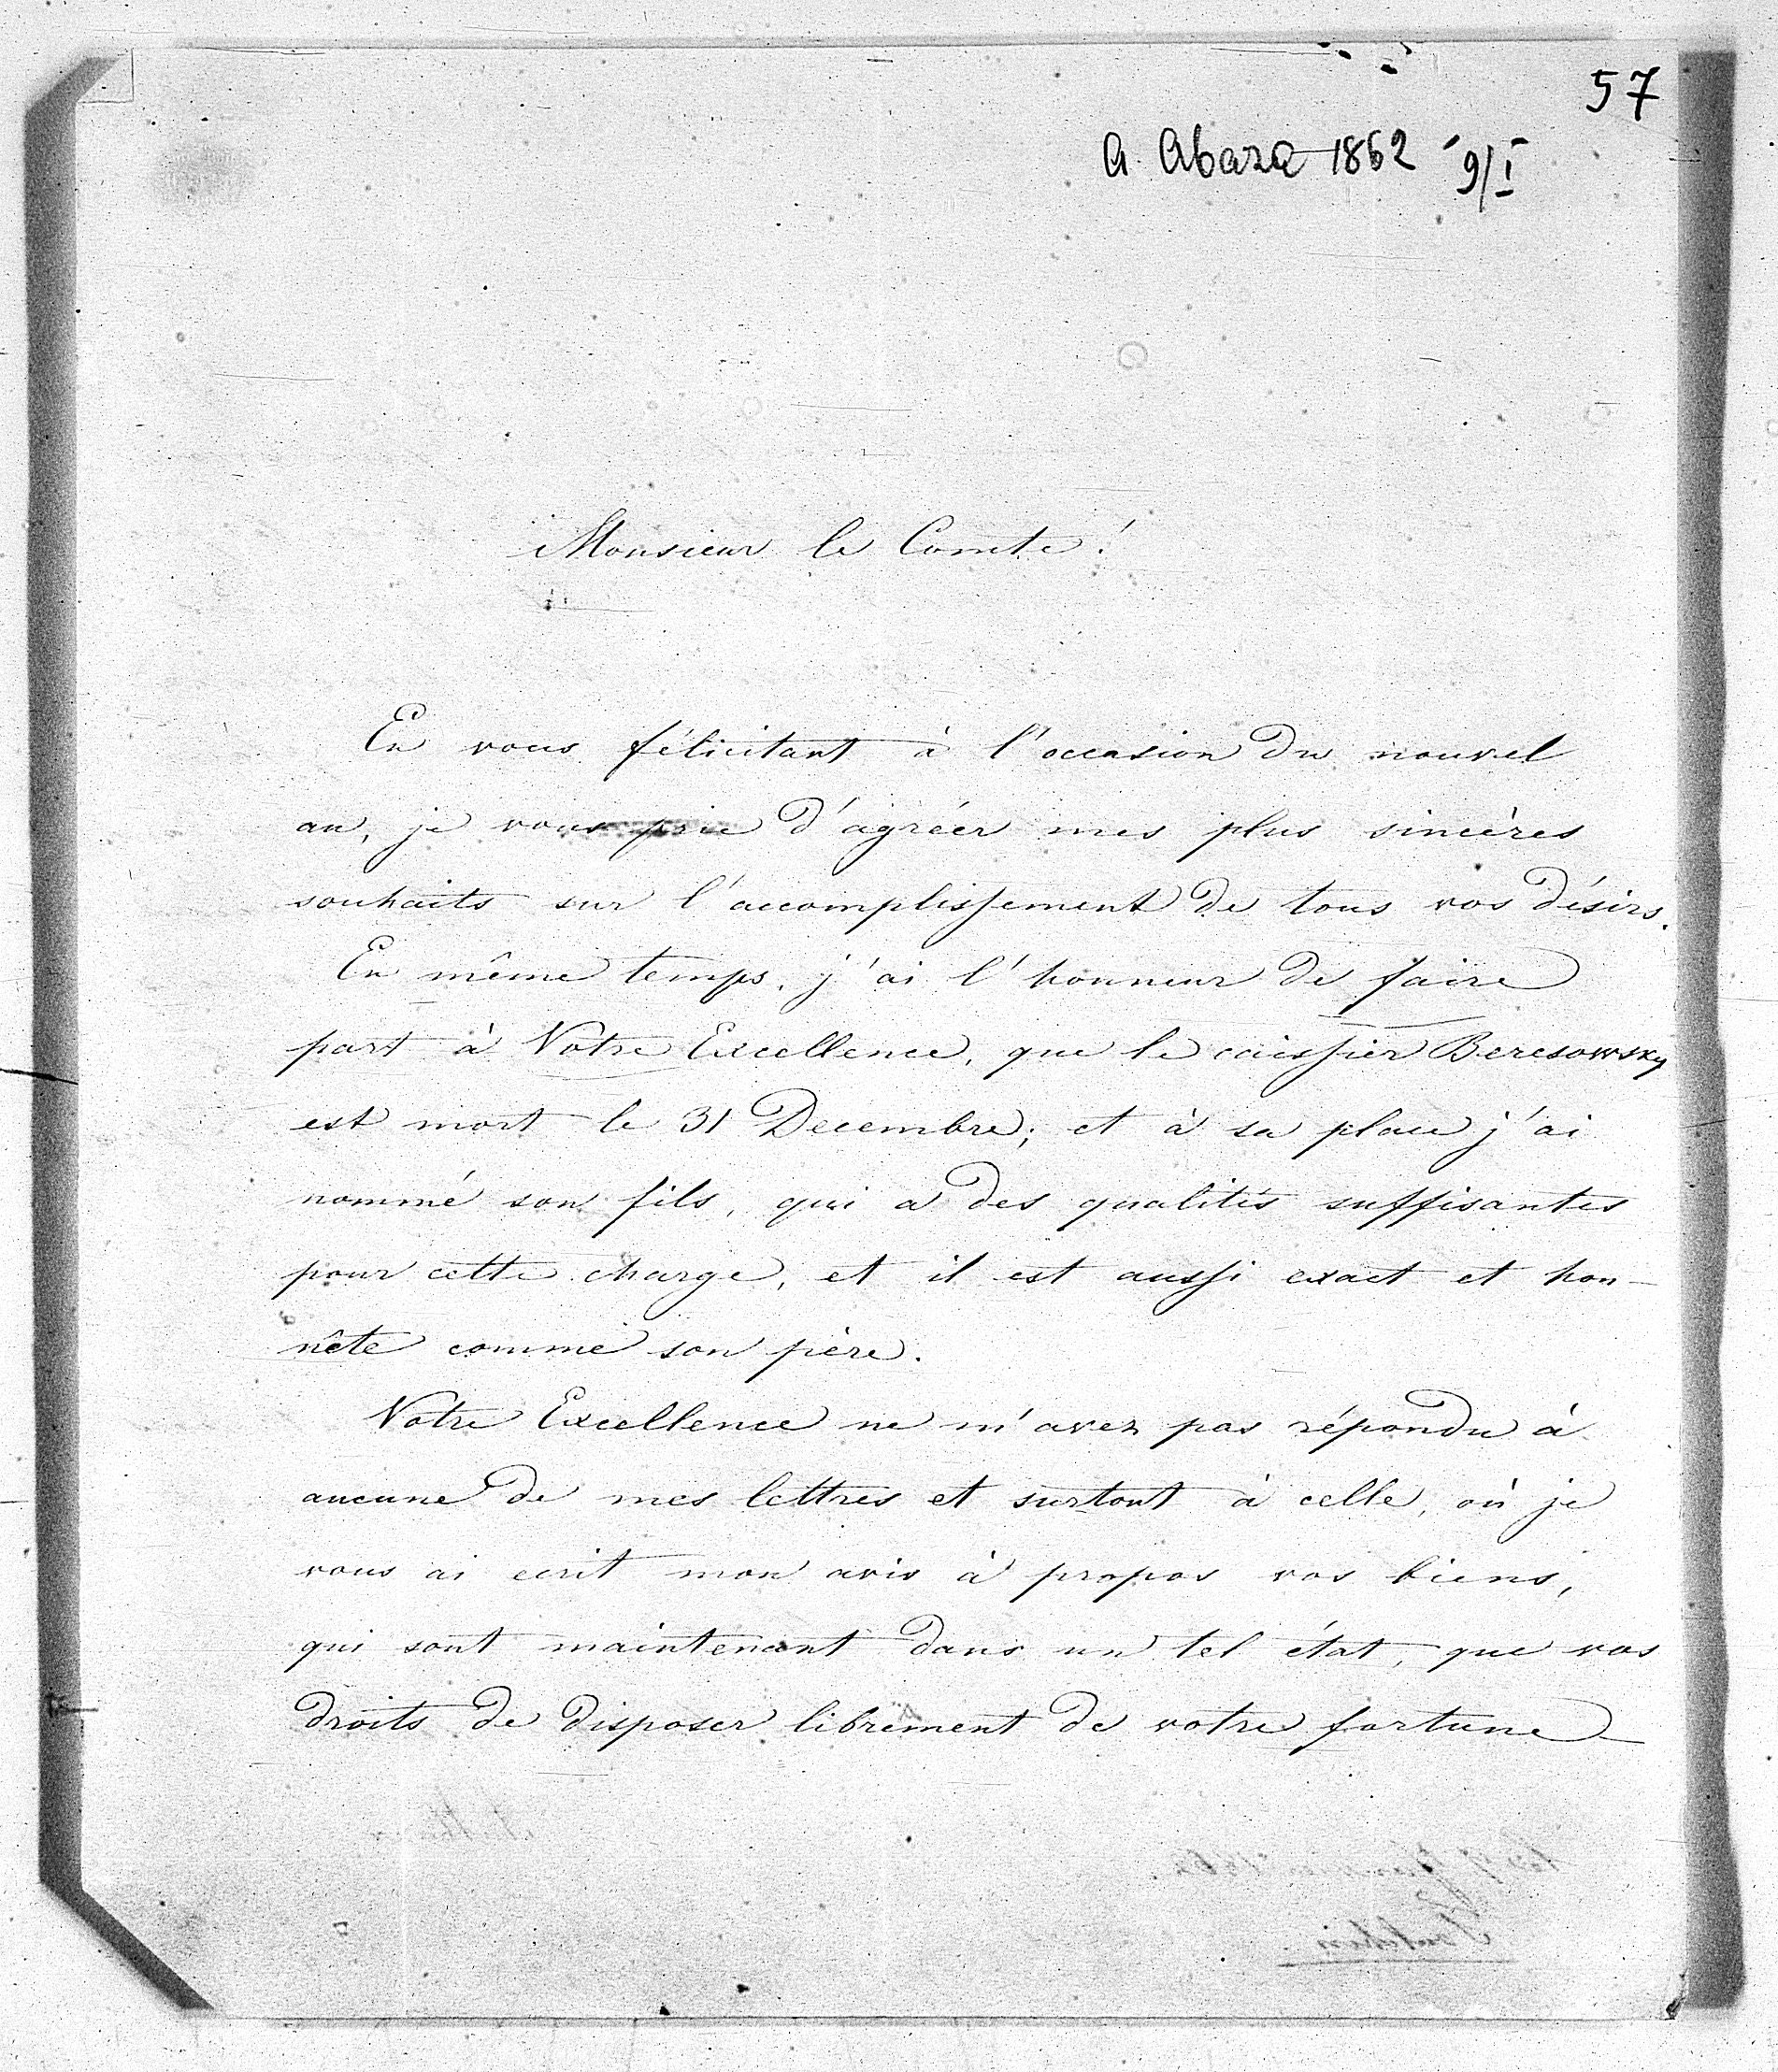 57
A. Abaza 1862 9/I
Monsieur le Comte!
En vous félicitant à l'occasion du nouvel
an, je vous prie d'agréer mes plus sincères
souhaits sur l'accomplissement de tous vos désirs.
En même temps, j'ai l'honneur de faire
part à Votre Excellence, que le caissier Beresowsky
est mort le 31 Decembre; et à sa place j'ai
nommé son fils, qui a des qualités suffisantes
pour cette charge, et il est aussi exact et hon-
nête comme son père.
Votre Excellence ne m'avez pas répondu à
aucune de mes lettres et surtout à celle, où je
vous ai ecrit mon avis à propos vos biens,
qui sont maintenant dans un tel état, que vos
droits de disposer librement de votre fortune